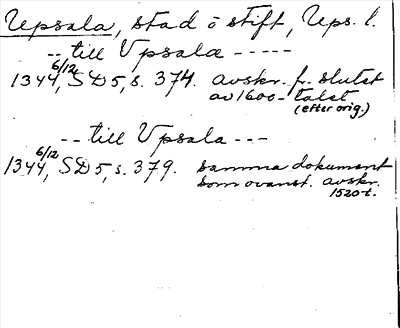 Upsala, stad o stift, Ups. l.
-- till Vpsala -----
1344 6/12, SD 5, s. 374. avskr. fr. slutet
av 1600-talet
(efter orig.)
-- till Vpsala ---
1344 6/12, SD 5, s. 379. samma dokument
som ovanst. avskr.
1520-t.